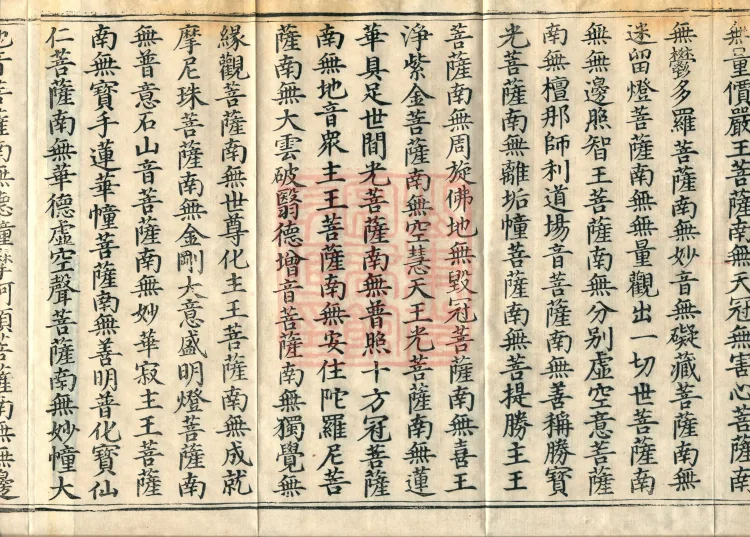 無量價嚴王菩薩南無天冠無害心菩薩南
無鬱多羅菩薩南無妙音無礙藏菩薩南無
迷留燈菩薩南無無量觀出一切世菩薩南
無無邊照智王菩薩南無分別虛空意菩薩
南無檀那師利道場音菩薩南無善稱勝寶
光菩薩南無離垢幢菩薩南無菩提勝主王
菩薩南無周旋佛地無毀冠菩薩南無喜王
淨紫金菩薩南無空慧天王光菩薩南無蓮
華具足世間光菩薩南無普照十方冠菩薩
南無地音衆主王菩薩南無安住陀羅尼菩
薩南無大雲破翳德增音菩薩南無獨覺無
緣觀菩薩南無世尊化主王菩薩南無成就
摩尼珠菩薩南無金剛大意盛明燈菩薩南
無普意石山音菩薩南無妙華寂主王菩薩
南無寶手蓮華幢菩薩南無善明普化寶仙
仁菩薩南無華德虛空聲菩薩南無妙幢大
地音菩薩南無德幢摩訶須菩薩南無無邊